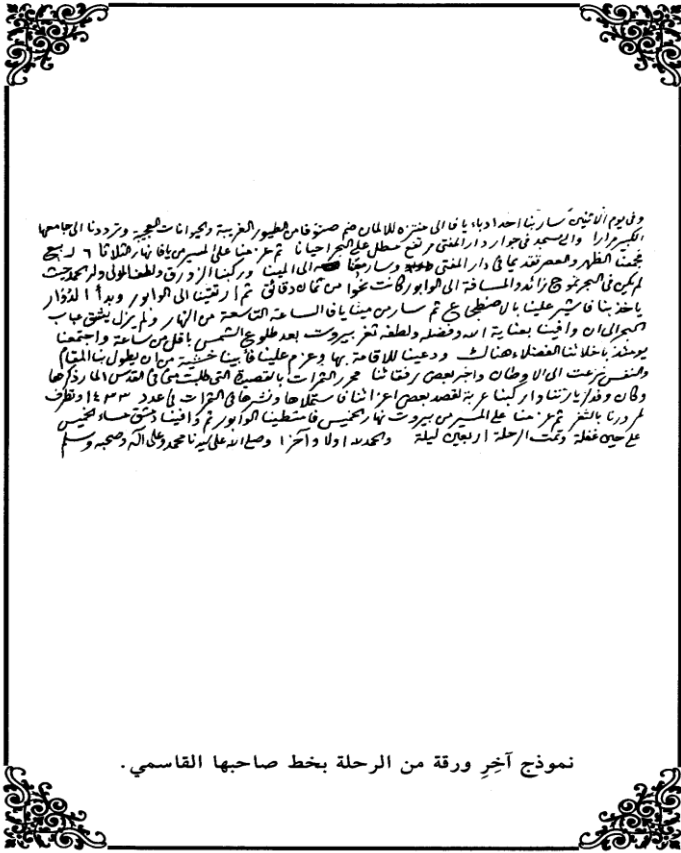 وفي يوم الاثنين سار بنا احد ادباء يافا الى منتزه للالمان ضم صنوفا من الطيور الغريبة والحيوانات العجيبة وترددنا الى جامعها
الكبير مرارا والى مسجد في جوار دار المفتي مرتفع مطل على البحر احيانا ثم عزمنا على المسير من يافا نهار الثلاثا ٦ ربيع
فجمعنا الظهر والعصر تقديما في دار المفتي وسار معنا الى المينا وركبنا الزورق ولطف المولى وله الحمد حيث
لم يكن في البحر تموج زائد والمسافة الى الوابور كانت نحوا من ثمان دقائق ثم ارتقينا الى الوابور وبدأ الدوار
ياخذ بنا فاشير علينا بالاضطجاع ثم سار من مينا يافا الساعة التاسعة من النهار ولم يزل يشق عباب
البحر الى ان وافينا بعناية الله وفضله ولطفه ثغر بيروت بعد طلوع الشمس باقل من ساعة واجتمعنا
يومئذ باخلائنا الفضلاء هناك ودعينا للاقامة بها وعزم علينا فأبينا خشية من ان يطول بنا المقام
والنفس نزعت الى الاوطان واخبر بعض رفقائنا محرر الثمرات بالقصيدة التي طلبت مني في القدس المار ذكرها
وكان وفد لزيارتنا واركبنا عربة لقصد بعض اعزائنا فاستملاها ونشرها في الثمرات في عدد ١٤٣٣ وتطرف
لمرورنا بالثغر ثم عزمنا على المسير من بيروت نهار الخميس فامتطينا الوابور ثم وافينا دمشق مساء الخميس
على حين غفلة وتمت الرحلة اربعين ليلة والحمد لله اولا وآخرا وصلى الله على سيدنا محمد وعلى اله وصحبه وسلم
نموذج آخِرِ ورقة من الرحلة بخط صاحبها القاسمي.